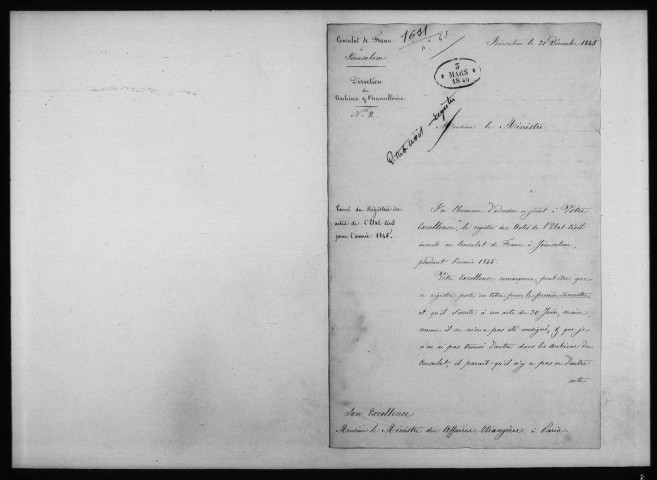 Consulat de France
à
Jérusalem
1631
Jérusalem le 31 Décembre 1845
3
MARS
1846
Direction
des
Archives & Chancelleries
N.º 2.
Etat civil
Monsieur le Ministre,
Envoi du Registre des
actes de l'Etat-Civil
pour l'année 1845.
J'ai l'honneur d'adresser ci-joint à Votre
Excellence, le registre des Actes de l'Etat-Civil
inscrits au Consulat de France à Jérusalem,
pendant l'année 1845.
Votre Excellence remarquera peut-être que
ce registre porte en titre pour le premier Semestre
et qu'il s'arrête à un acte du 30 Juin, mais,
comme il ne m'en a pas été consigné, & que je
n'en ai pas trouvé d'autre dans les archives du
Consulat, il paraît qu'il n'y a pas eu d'autre
acte
Son Excellence
Monsieur le Ministre des Affaires Etrangères à Paris.